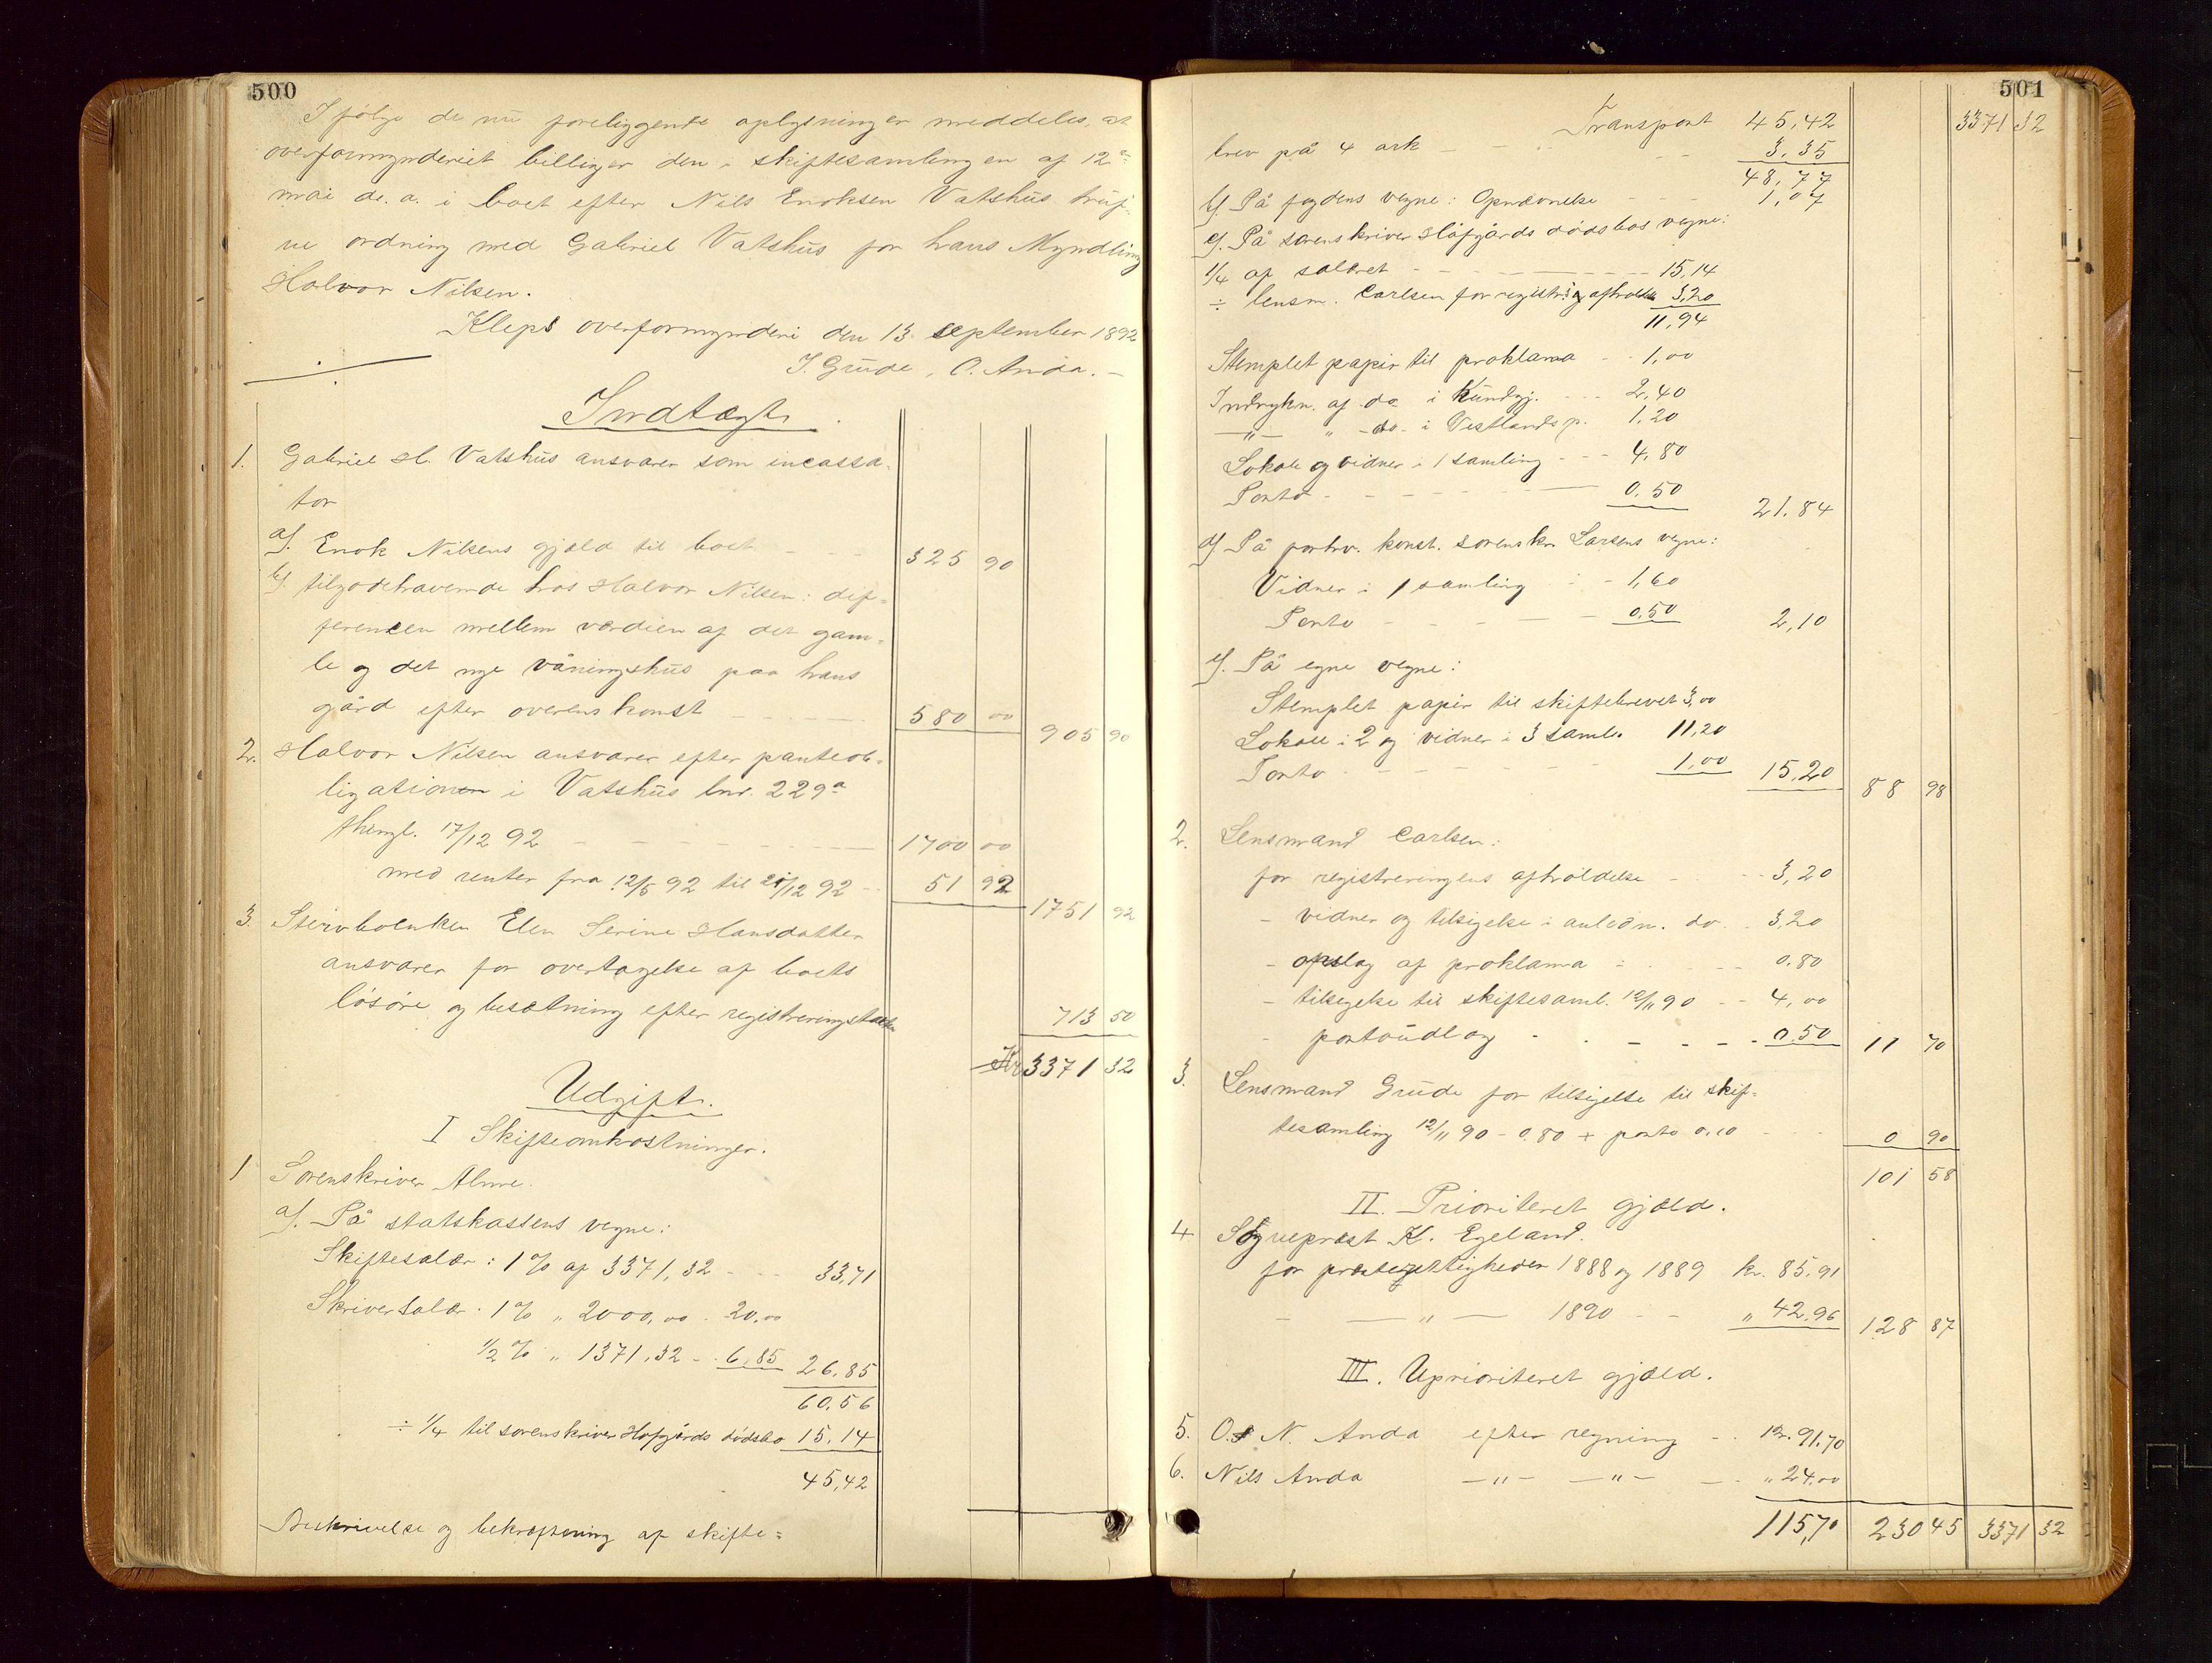 500
Ifölge de nu foreliggende oplysninger meddeles, at
overformynderiet billiger den i skiftesamlingen af 12te
mai d. a. i boet efter Nils Enoksen Vatshus trufne
ordning med Gabriel Vatshus for hans Myndling
Halvor Nilsen.
Kleps overformynderi den 13. september 1892
I. Grude, O. Anda. –
Indtægt.
1. Gabriel H. Vatshus ansvarer som incassa-
tor
a). Enok Nilsens gjæld til boet - - 325 90
b). tilgodehavende hos Halvor Nilsen: dif-
ferencen mellem værdien af det gam-
le og det nye våningshus paa hans
gård efter overenskomst - - - 580 00 905 90
2. Halvor Nilsen ansvarer efter panteob-
ligationen i Vatshus lnr. 229a
thingl. 17/12 92 - - - - - 1700 00
med renter fra 12/5 92 til 21/12 92 - 51 92 1751 92
3. Stervboenken Elen Serine Hansdatter
ansvarer for overtagelse af boets
lösöre og besætning efter registreringstaxten 713 50
Kr 3371 32
Udgift.
I Skifteomkostninger.
1 Sorenskriver Alme.
a). På statskassens vegne:
Skiftesalær: 1 % af 3371,32 - - - 33,71
Skriversalær. 1 % „ 2000,00 . 20,00
1/2 % „ 1371,32 - . 6,85 26,85
60,56
÷ 1/4 til sorenskriver Hofgårds dödsbo 15,14
45,42
Beskrivelse og bekræftning af skifte=
501
Transport 45,42 3371 32
brev på 4 ark - - - 3,35
48,77
b). På fogdens vegne: Opnævnelse - - - 1,07
c). På sorenskriver Hofgårds dödsbos vegne:
1/4 af salæret - - - - - 15,14
÷ lensm. Carlsen for registr. afholdelse 3,20
11,94
Stemplet papir til proklama - - 1,00
Indrykn. af do i Kundgj. - - - 2,40
—„— „ - do - i Vestlandsp. 1,20
Lokale og vidner i 1 samling - - - 4,80
Porto - - - - - 0,50 21.84
d). På forhv. konst. sorenskr. Larsens vegne:
Vidner i 1 samling - - 1,60
Porto - - - - 0,50 2,10
e). På egne vegne:
Stemplet papir til skiftebrevet 3,00
Lokale i 2 og vidner i 3 saml. 11,20
Porto - - - - - 1,00 15,20 88 98
2. Lensmand Carlsen:
for registreringens afholdelse - - - 3,20
- vidner og tilsigelse i anledn. do . . 3,20
- opslag af proklama - - - - 0.80
- tilsigelse til skiftesaml. 12/11 90 - - 4,00
- portoudlæg - - - - - 0,50 11 70
3. Lensmand Grude for tilsigelse til skif=
tesamling 12/11 90 - 0.80 + porto 0.10 - - 0 90
101 58
II. Prioriteret gjæld.
4 Sogneprest K. Egeland.
for presterettigheder 1888 og 1889 kr. 85,91
- —„— 1890 - - „ 42,96 128 87
III. Uprioriteret gjæld.
5. O. N. Anda efter regning - . kr. 91,70
6. Nils Anda —„— —„— - - „ 24,00
115,70 230 45 3371 32